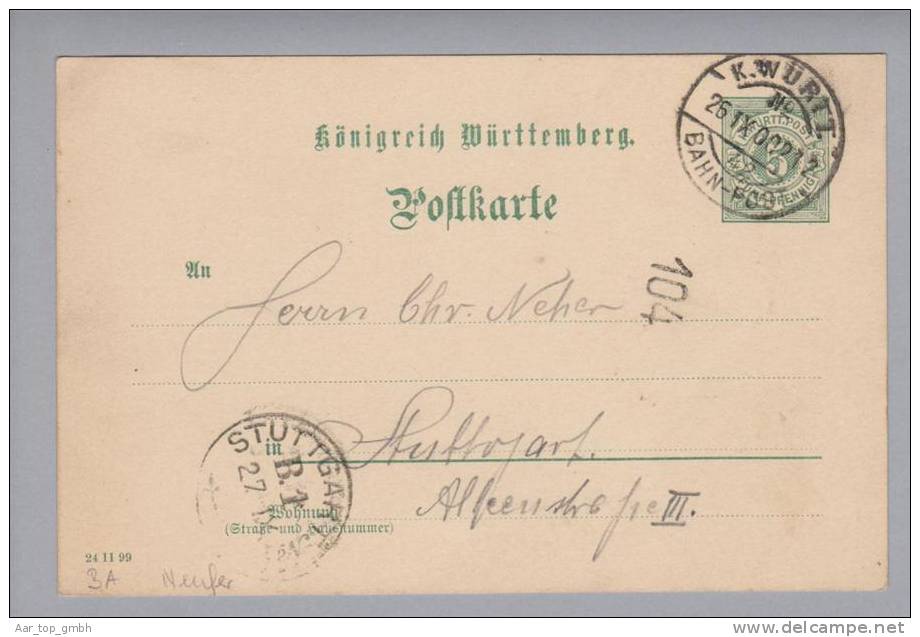 K. WÜRTT.
No
26 IX 00
BAHN-POS
WÜRTT. POST
5
PFENNIG
Königreich Württemberg.
Postkarte
An
Herrn Chr. Neher
104
Stuttgart.
in
STUTTGAR
B. 1
27
Wohnung
(Straße und Hausnummer)
III.
24 11 99
BA
Aar_top_gmbh
www.delcampe.net